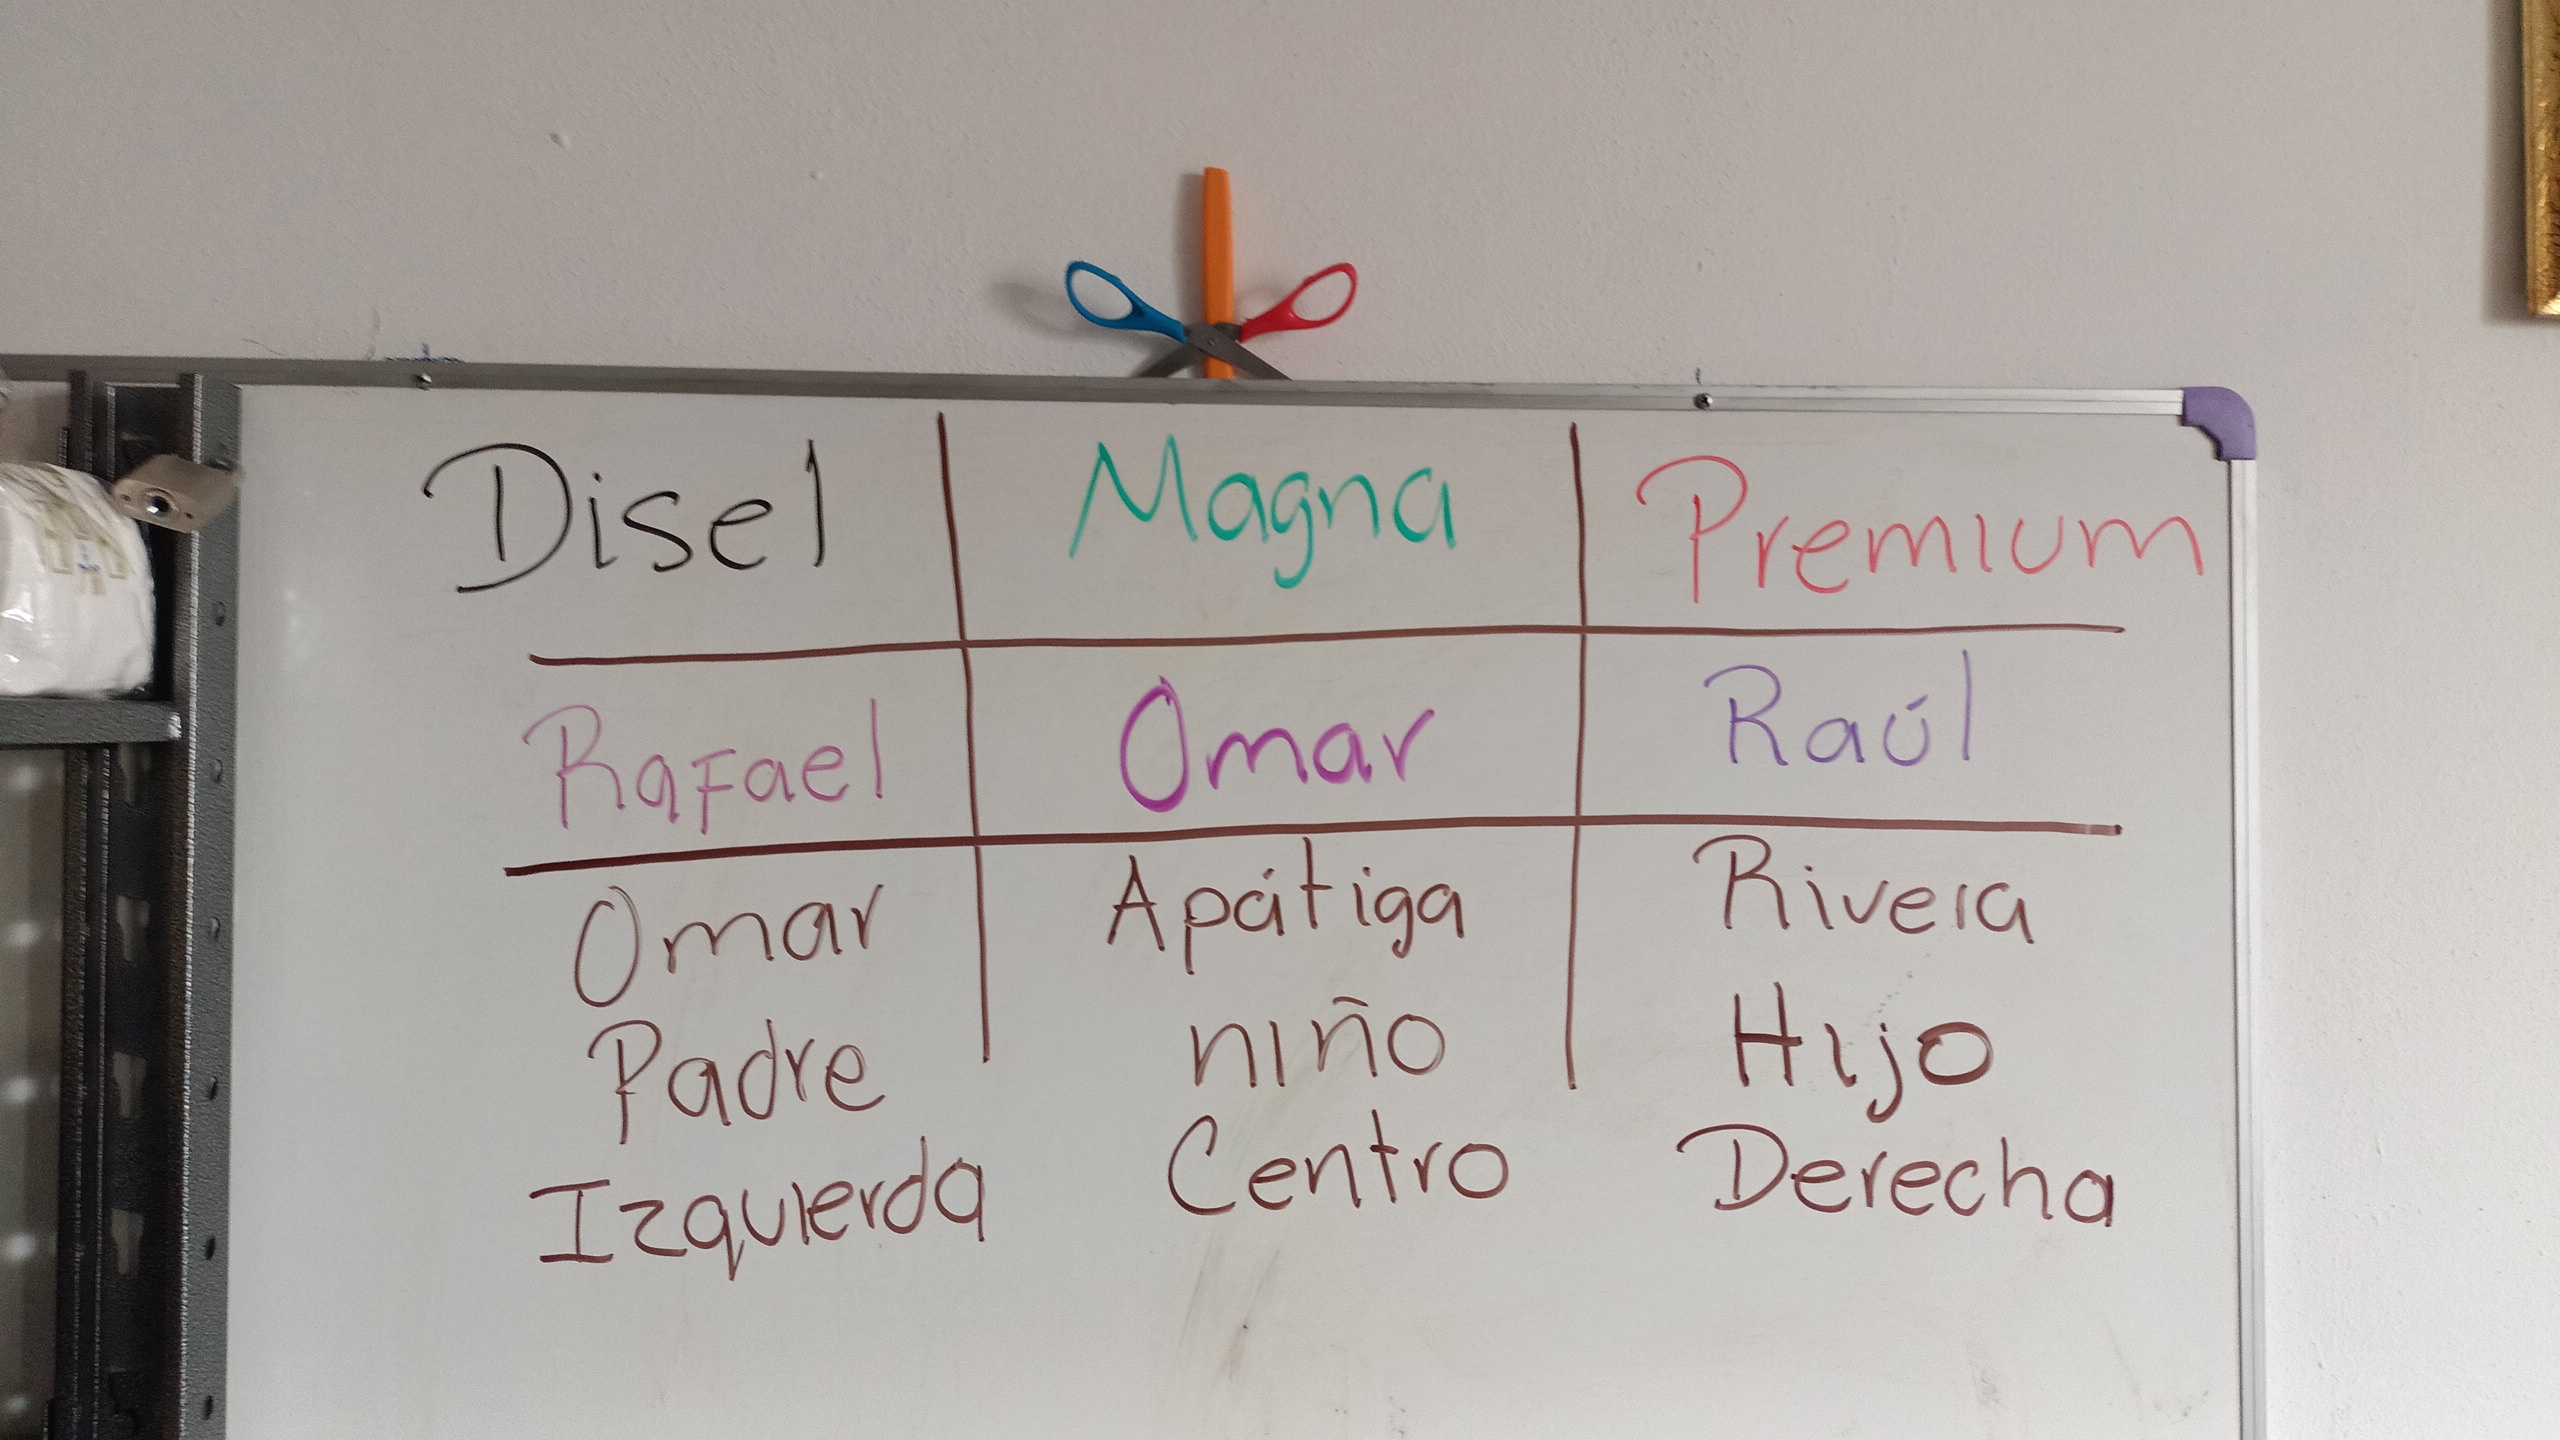 Disel Magna Premium
Rafael Omar Raúl
Omar Apátiga Rivera
Padre niño Hijo
Izquierda Centro Derecha